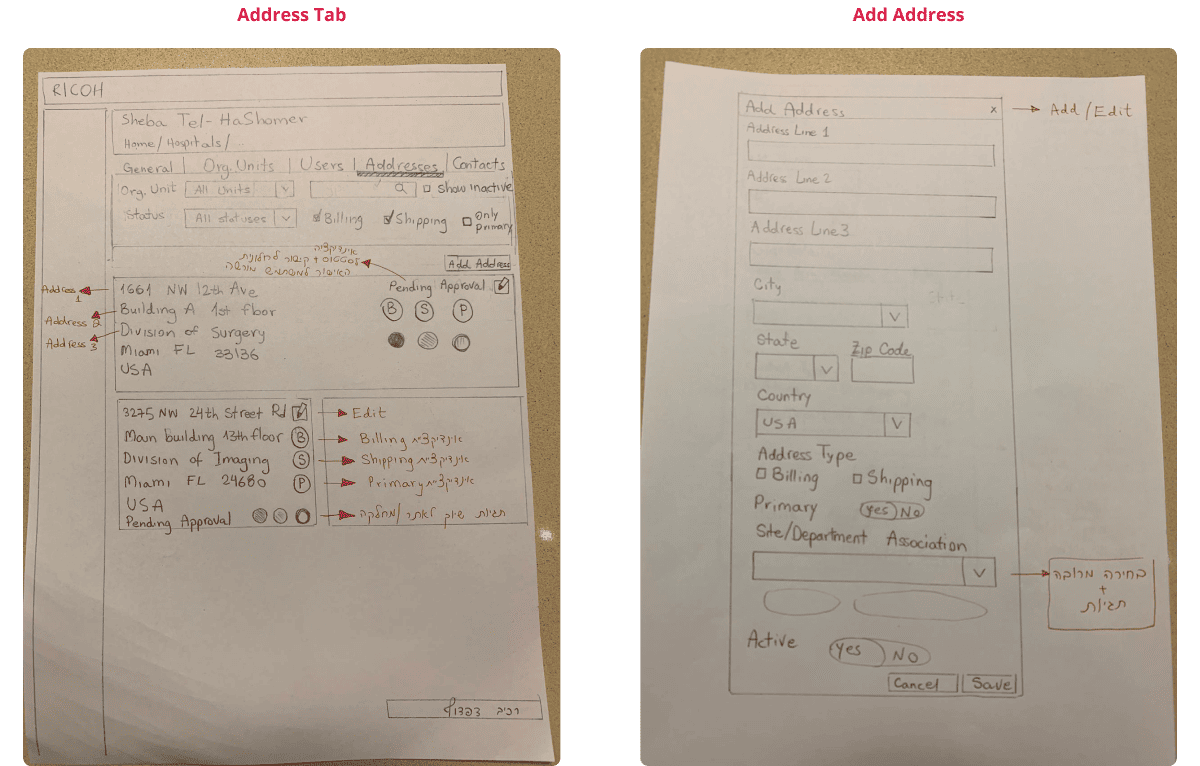 Address Tab
RICOH
Sheba Tel-HaShomer
Home/Hospitals/...
General | Org. Units | Users | Addresses | Contacts
Org. Unit All Units Show inactive
Status All statuses Billing Shipping Only primary
אינדיקציה
לסטטוס + קישור לחלונית
האישור למשתמש מורשה
Add Address
Pending Approval
Address 1
1661 NW 12th Ave
Address 2
Building A 1st floor
B S P
Address 3
Division of Surgery
Miami FL 33136
USA
3275 NW 24th Street Rd
Edit
Main building 13th floor B
Billing אינדיקציית
Division of Imaging S
Shipping אינדיקציית
Miami FL 24680 P
Primary אינדיקציית
USA
Pending Approval
תגיות שיוך לאתר/מחלקה
רכיב דפדוף
Add Address
Add Address x
Add/Edit
Address Line 1
Addres Line 2
Address Line 3
City
State Zip Code
Country
USA
Address Type
Billing Shipping
Primary Yes No
Site/Department Association
בחירה מרובה
+
תגיות
Active Yes No
Cancel Save